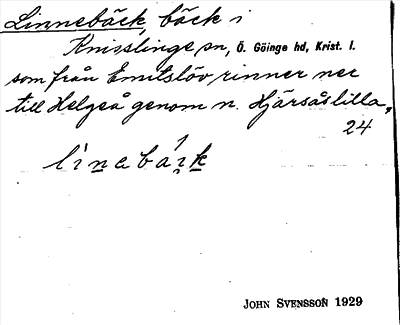 Linnebäck, bäck i
Knisslinge sn, Ö. Göinge hd, Krist. l.
som från Emitslöv rinner ner
till Helgeå genom n. Hjärsåslilla,
24
JOHN SVENSSON 1929